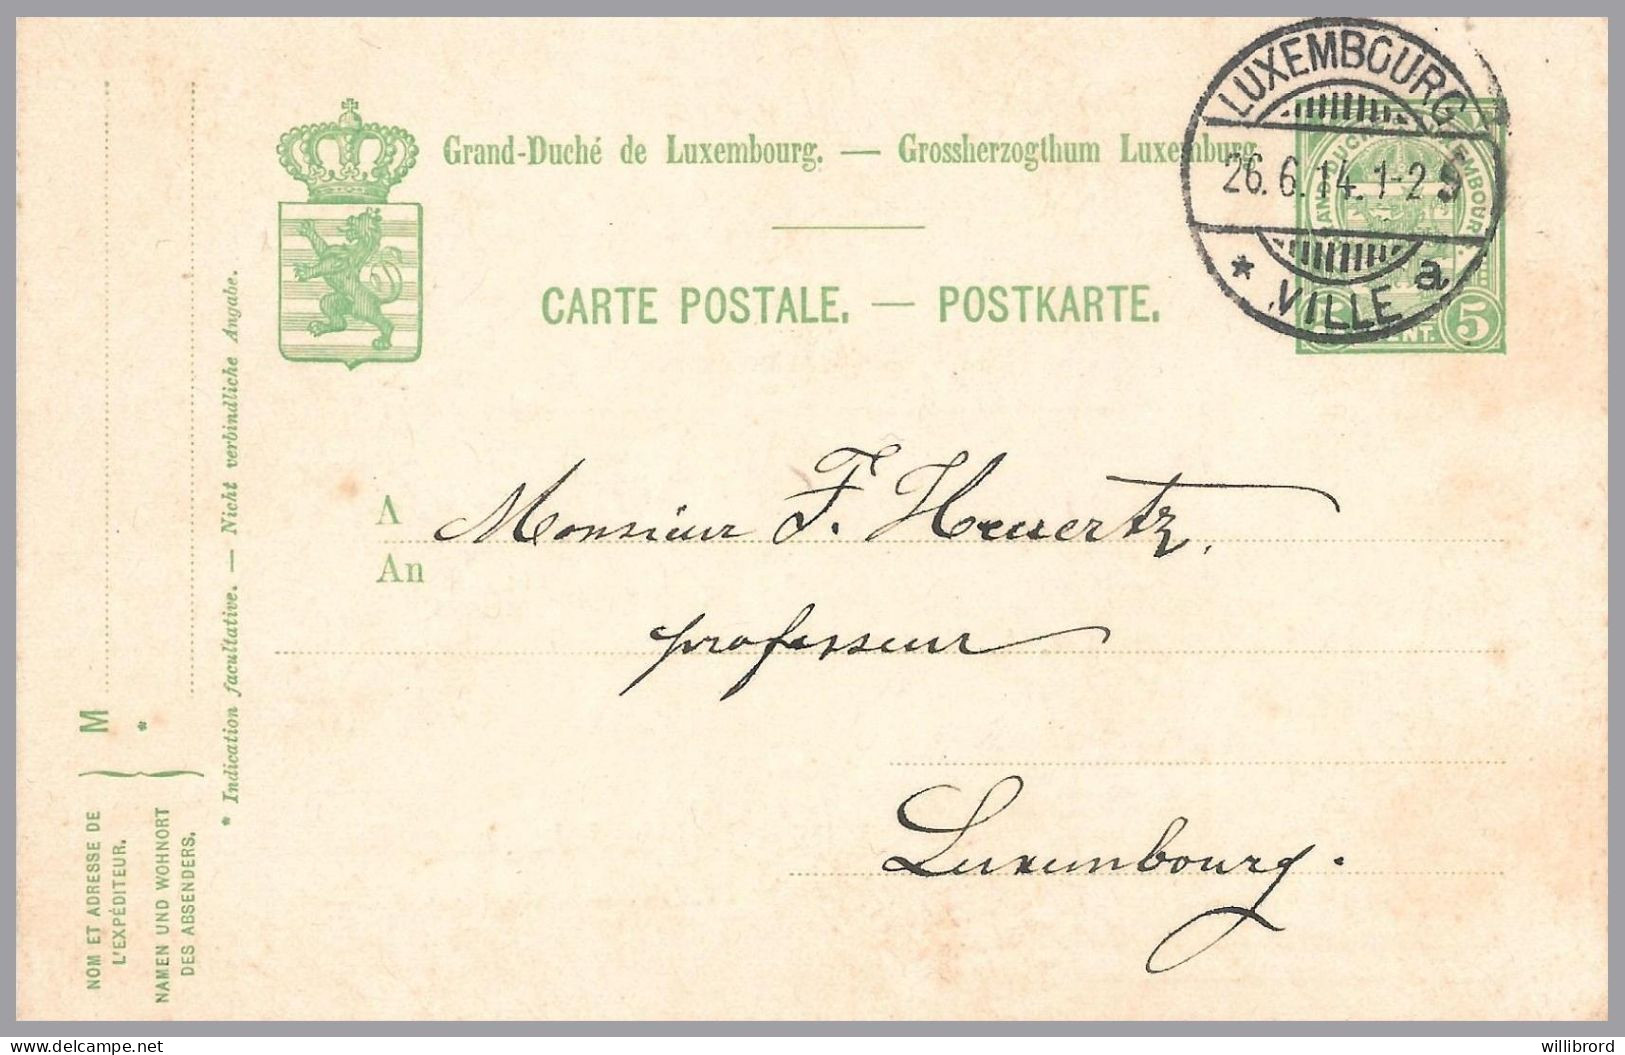 Grand-Duché de Luxembourg. — Grossherzogthum Luxemburg
CARTE POSTALE. — POSTKARTE.
LUXEMBOURG
26.6.14. 1-2 S
* VILLE a
5
CENT.
A Monsieur F. Heuertz,
An
professeur
Luxembourg.
NOM ET ADRESSE DE
L'EXPÉDITEUR.
M
NAMEN UND WOHNORT
DES ABSENDERS.
*
* Indication facultative. — Nicht verbindliche Angabe.
willibrord